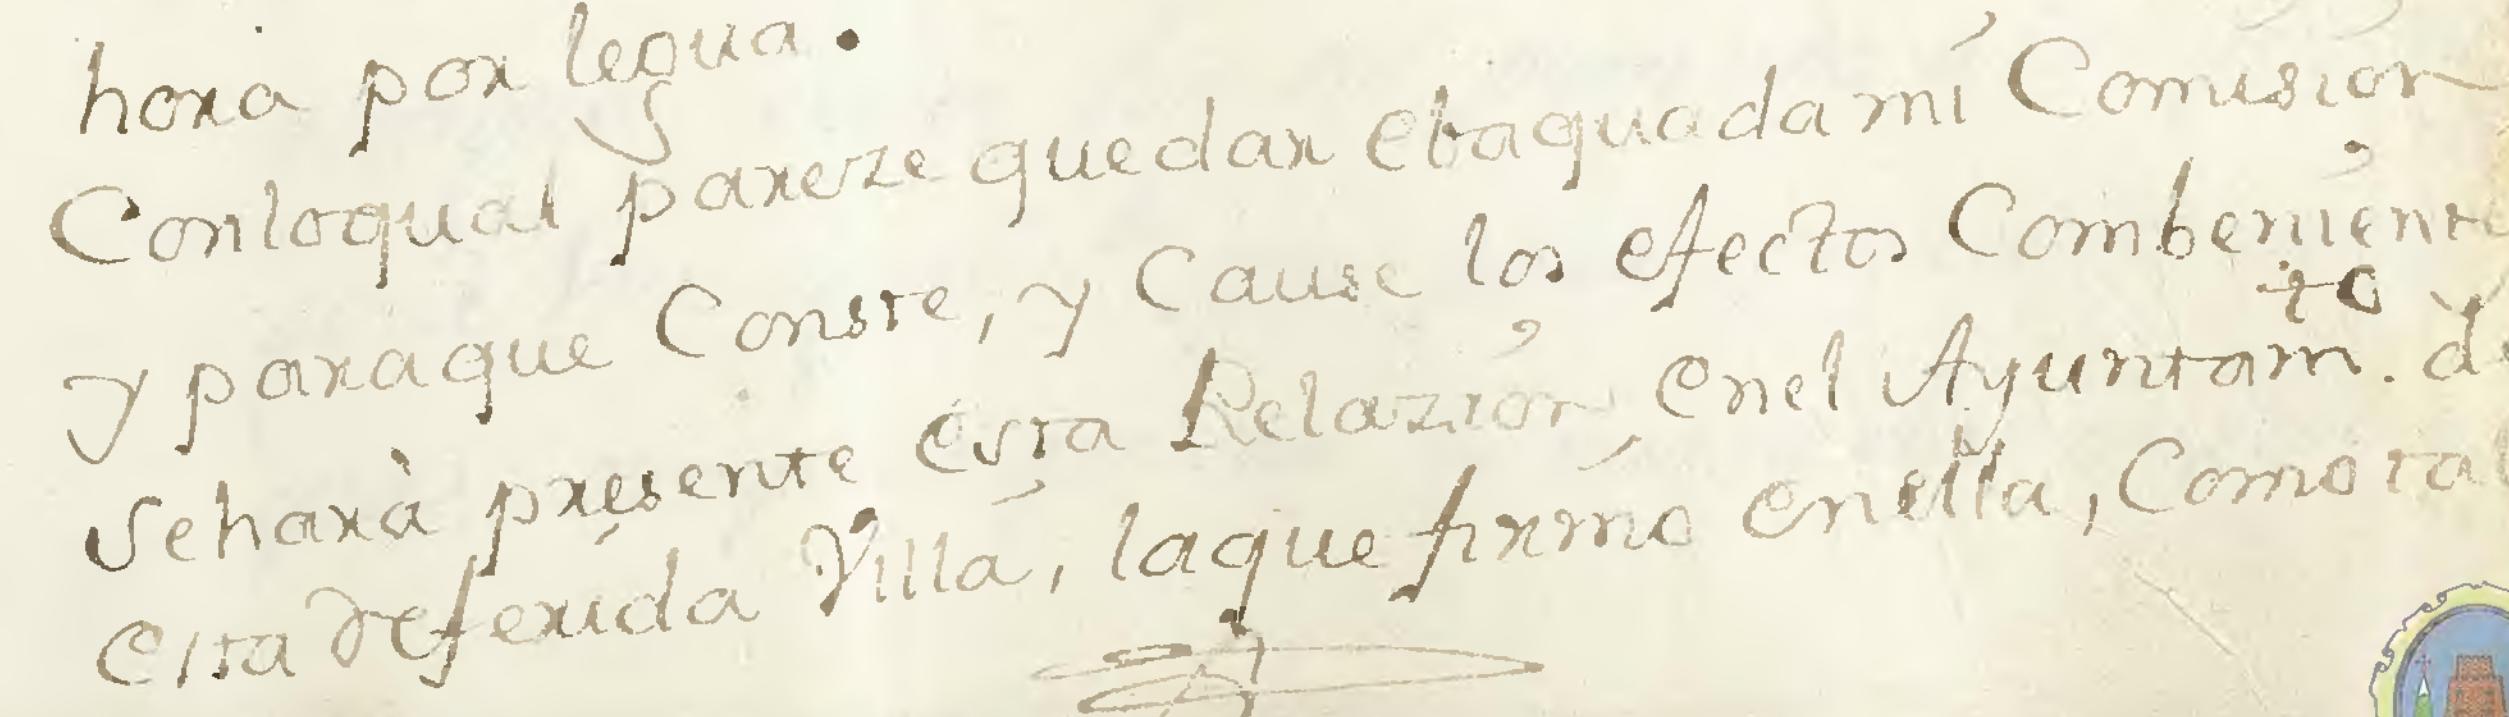 hora por legua.
Conloqual pareze quedar ebaquada mi Comision
y paraque Conste, y Cause los efectos Combeniente
seharà presente esta Relazion, enel Ayuntam.to de
esta referida Villa, laque firmo enella, Como ta